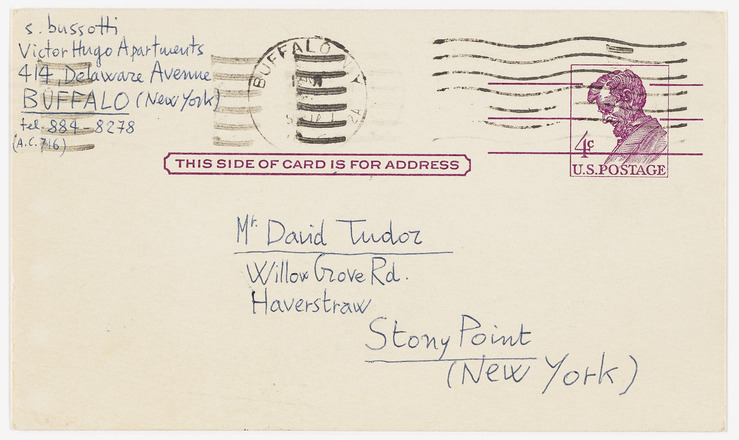 s. bussotti
Victor Hugo Apartments
414 Delaware Avenue
BUFFALO (New York)
tel. 884-8278
(A.C. 716)
BUFFALO NY
THIS SIDE OF CARD IS FOR ADDRESS
4¢
U.S. POSTAGE
Mr. David Tudor
Willow Grove Rd.
Haverstraw
Stony Point
(New York)